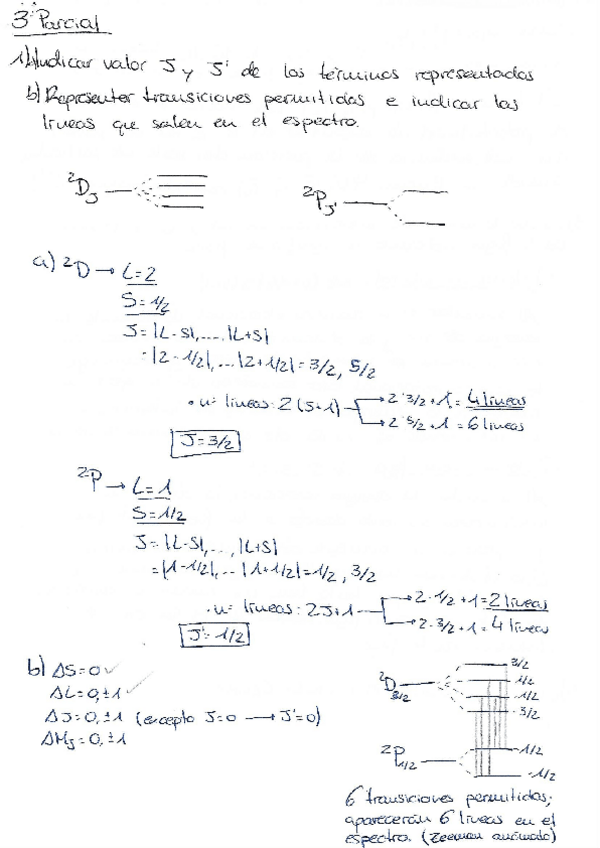 3º Parcial
1) Indicar valor J y J' de los términos representados
b) Representer transiciones permitidas e indicar las
líneas que salen en el espectro.
²D_J
²P_J'
a) ²D → L=2
S=1/2
J=|L-S|,...,|L+S|
=|2-1/2|,...|2+1/2|=3/2, 5/2
• nº líneas: 2(J+1) → 2·3/2+1=4 líneas
→ 2·5/2+1=6 líneas
J=3/2
²P → L=1
S=1/2
J=|L-S|,...,|L+S|
=|1-1/2|,...|1+1/2|=1/2, 3/2
• nº líneas: 2J+1 → 2·1/2+1=2 líneas
→ 2·3/2+1=4 líneas
J'=1/2
b) ΔS=0 ✓
ΔL=0,±1 ✓
ΔJ=0,±1 (excepto J=0 → J'=0)
ΔMj=0,±1
²D3/2
3/2
1/2
-1/2
-3/2
²P1/2
1/2
-1/2
6 transiciones permitidas;
aparecerán 6 líneas en el
espectro. (Zeeman anómalo)